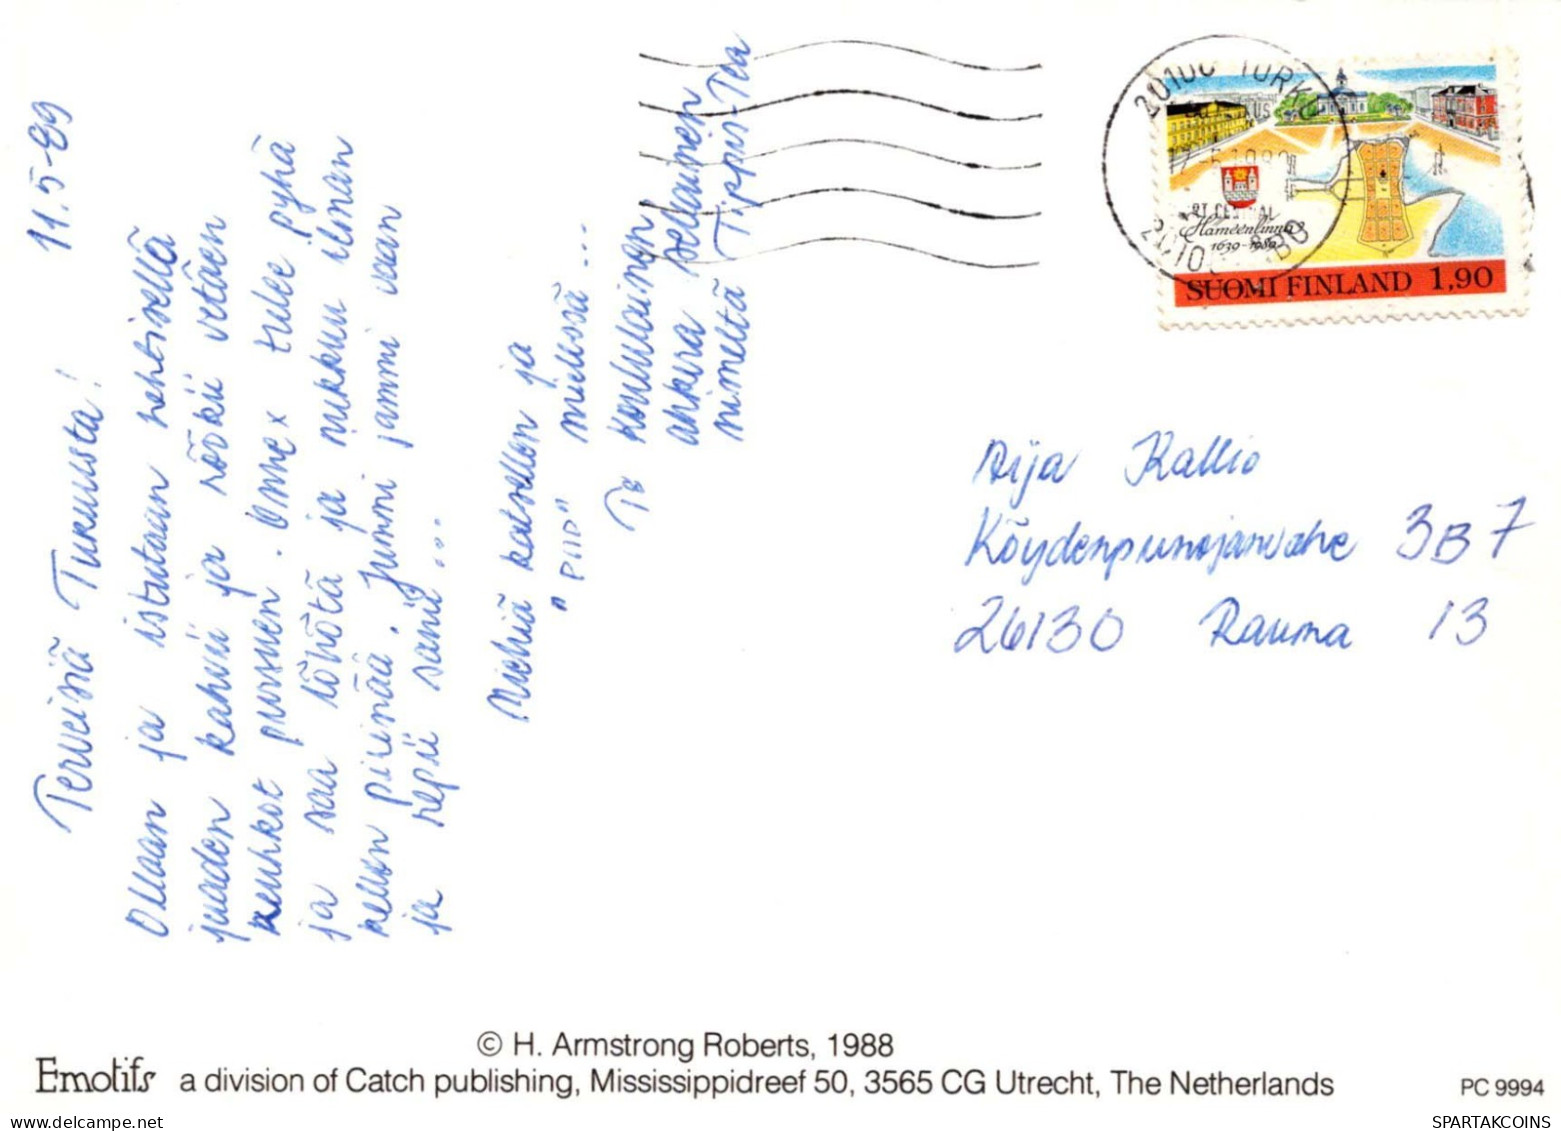 11.5-89
Terveisiä Turuusta!
Ollaan ja istutaan nehtisellä
juaden kahvii ja röökii vetäen
keuhkot pursuen. Onnex tulee pyhä
ja saa löhötä ja nukkuu ilman
kellon pirinää. Jummi jammi vaan
ja repii sanii...
Michiä katsellen ja
"PIIP" mielessä...
To Koululainen
ankira sellainen
nimeltä Tippis-Tea
20100 TURKU
17.-5.1989
20100 ÅBO
Hämeenlinna
1639-1989
SUOMI FINLAND 1,90
Aija Kallio
Köydenpunojanvahe 3B7
26130 Rauma 13
© H. Armstrong Roberts, 1988
Emotifs a division of Catch publishing, Mississippidreef 50, 3565 CG Utrecht, The Netherlands PC 9994
SPARTAKCOINS